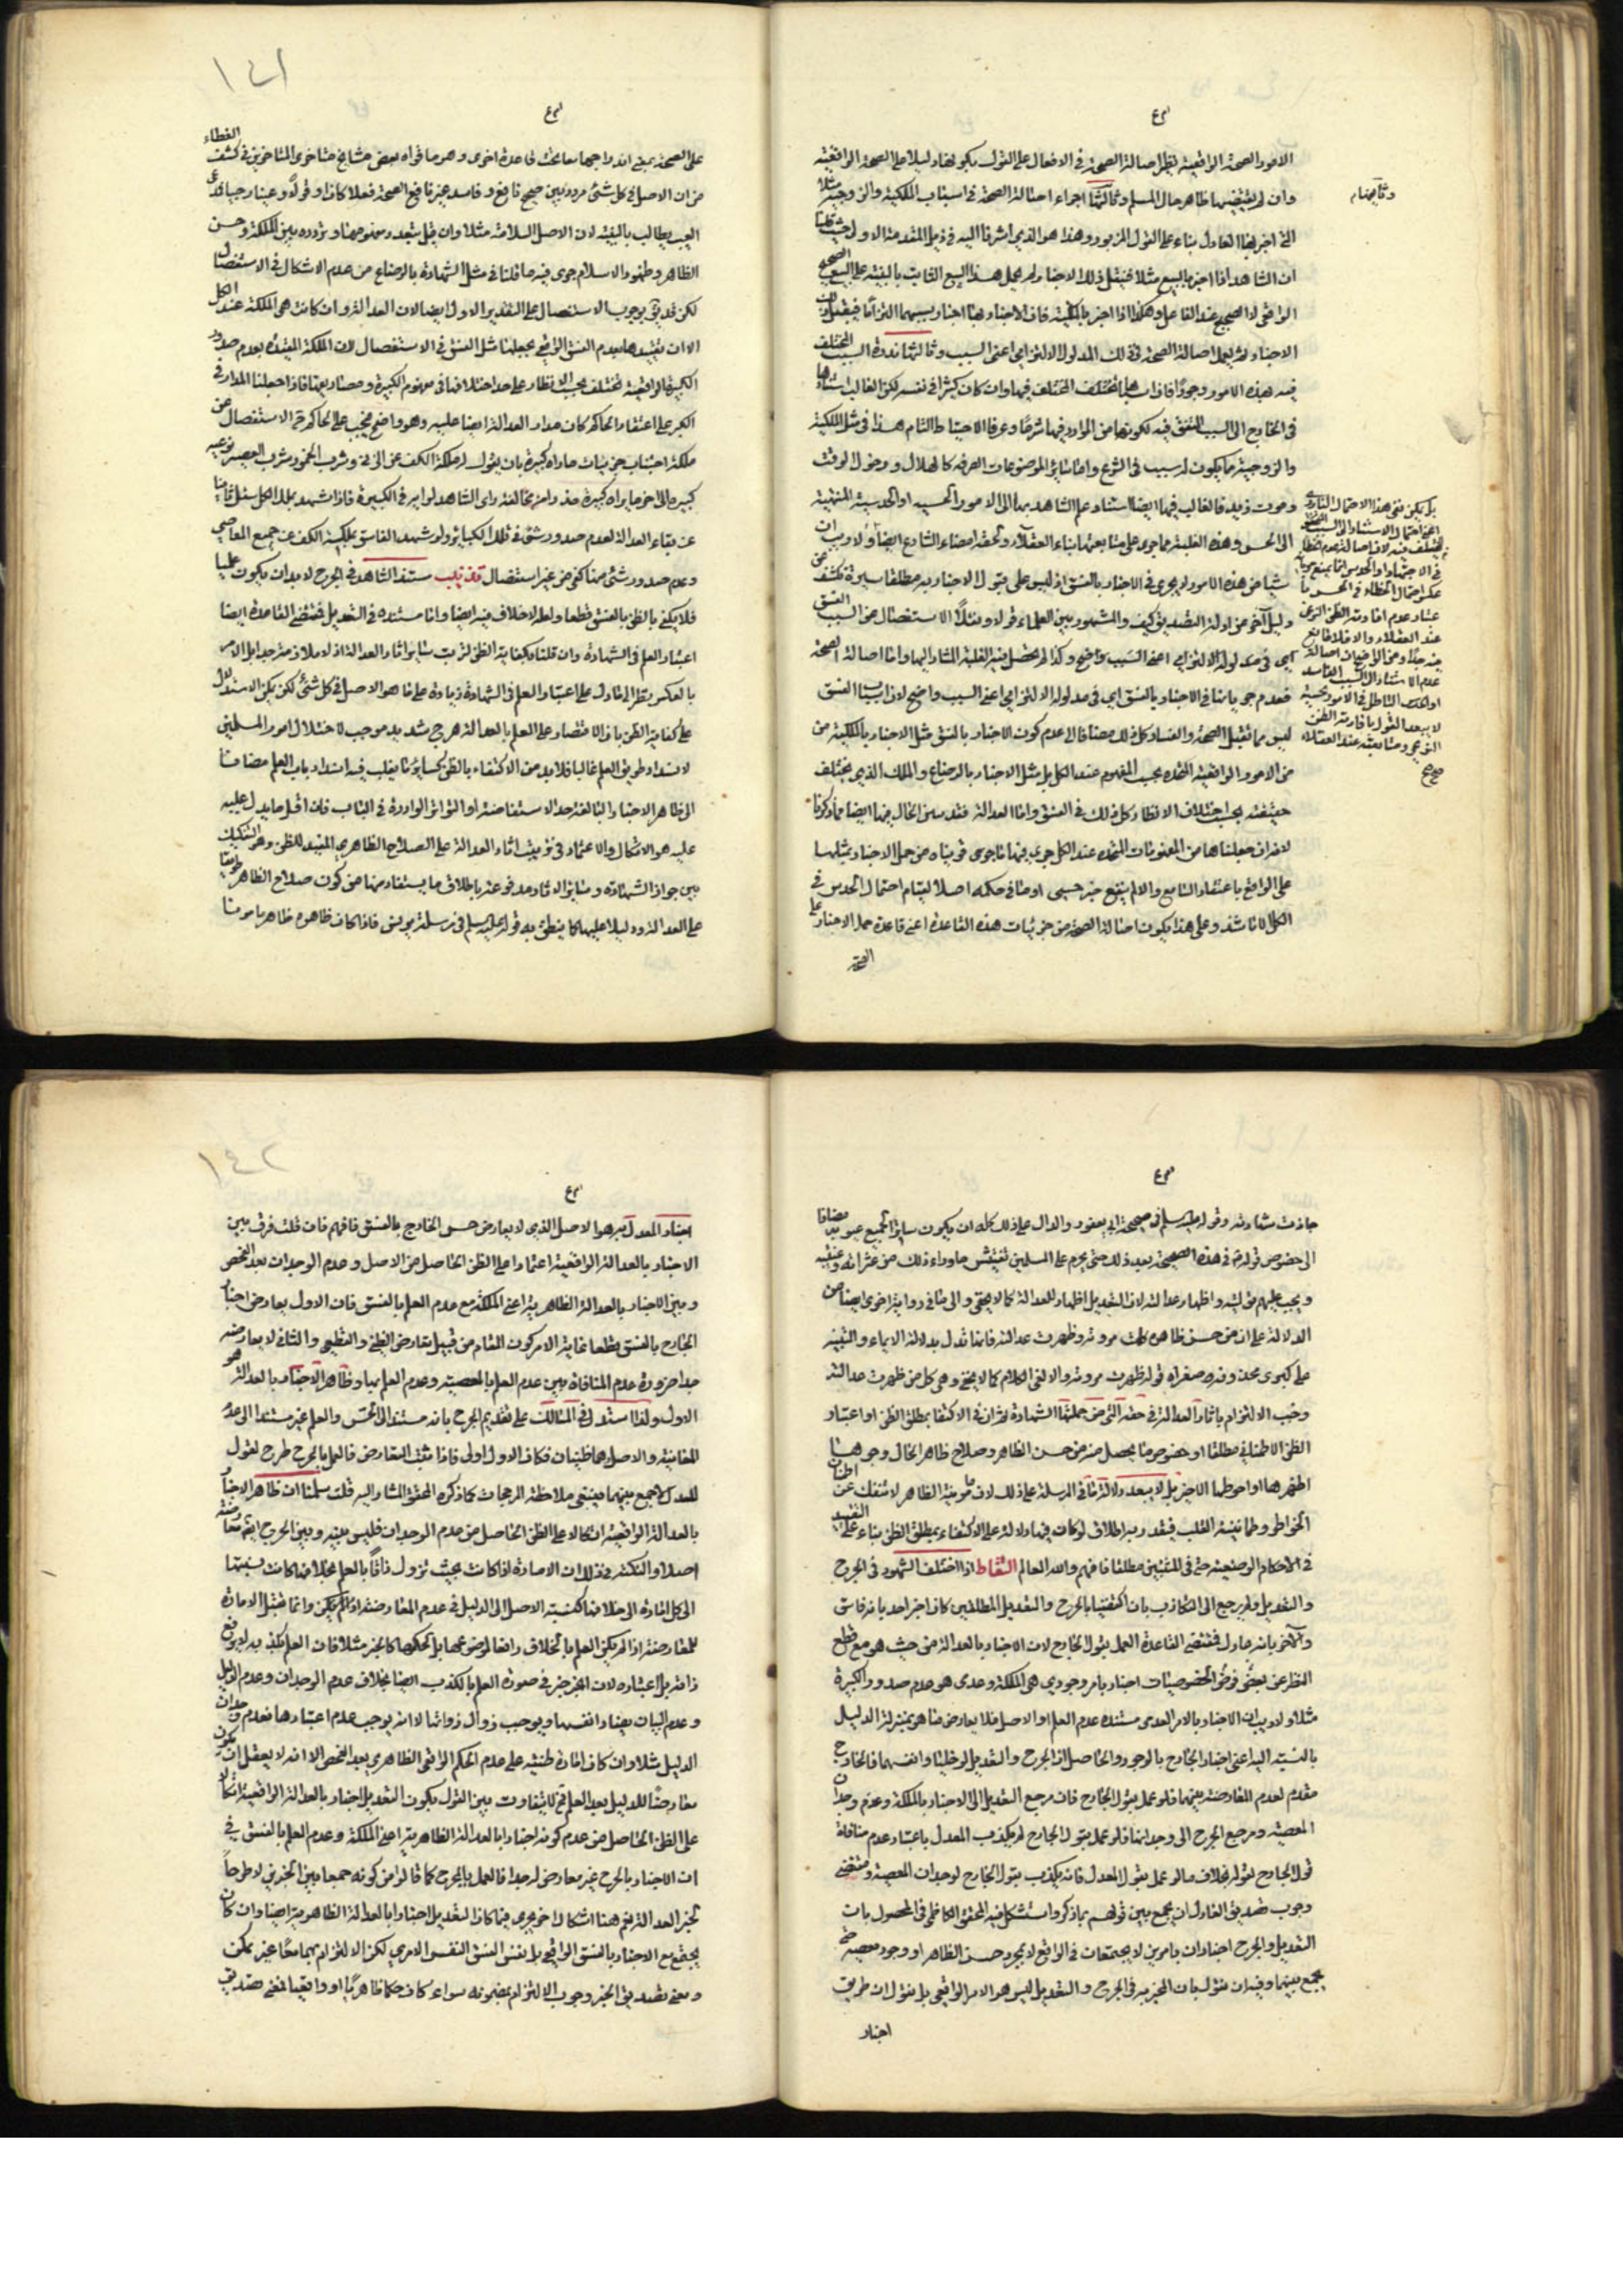 الامور الصحة الواقعية نظر اصالة الصحة في الافعال على القول بكونها دليلا على الصحة الواقعية
وان لم يقتضيها ظاهر حال المسلم وثالثها اجراء اصالة الصحة في اسباب الملكية والزوجية مثلا
التي اخبر بها العادل بناء على القول المزبور وهذا هو الذي اشرنا اليه في ذيل المقدمة الاولى حيث قلنا
ان الشاهد اذا اخبر بالبيع مثلا فنقبل ذلك الاخبار ولم يحمل هذا البيع الثابت بالبينة على البيع الصحيح
الواقعي لا الصحيح عند الفاعل وهكذا اذا اخبر بالملكية فان الاخبار بها اخبار بسببها التزاما فيقبل
الاخبار ثم يعمل اصالة الصحة في ذلك المدلول الالتزامي اعني السبب وثالثها ندرة السبب المختلف
فيه هذه الامور وجودا فان اسبابها المختلف فيها وان كان كثيرا في نفسه لكن الغالب استنادها
في الخارج الى السبب المتفق فيه لكونها من الموارد فيها شرعا وعرفا الاحتياط التام هذا في مثل الملكية
والزوجية مما يكون له سبب في الشرع واما سائر الموضوعات الصرفة كالهلال ودخول الوقت
وموت زيد فالغالب فيها ايضا استناد علم الشاهد بها الى الامور الحسية او الحدسية المنتهية
الى الحس وهذه الغلبة مما جرى على متابعتها بناء العقلاء وتحقق امضاء الشارع ايضا ولا ريب ان
شيئا من هذه الامور لا يجري في الاخبار بالفسق اذ ليس على قبول الاخبار به مطلقا سيرة تكشف عن
دليل آخر عن ادلة التصديق كيف والمشهور بين العلماء قولا وعملا الاستفصال عن السبب الفسق
اي في مدلوله الالتزامي اعني السبب واضح وكذا لم يحصل فيه الغلبة المشار اليها واما اصالة الصحة
فعدم جريانها في الاخبار بالفسق اي في مدلوله الالتزامي اعني السبب واضح لان اسباب الفسق
ليس مما تقبل الصحة والفساد كل ذلك مضافا الى عدم كون الاخبار بالفسق مثل الاخبار بالملكية من
من الامور الواقعية المتحدة بحسب المفهوم عند الكل بل مثل الاخبار بالرضاع والملك الذي يختلف
حقيقته بحسب اختلاف الانظار وكل ذلك في الفسق واما العدالة فقد تبين الحال فيها ايضا مما ذكرنا
لانه ان جعلناها من المعنويات المتحدة عند الكل جرى فيها ما جرى في بناء من حمل الاخبار بمثلها
على الواقع باعتقاد السامع والا لم ينفع خبر حسي او ما في حكمه اصلا لقيام احتمال الحدس في
الكل الا ما شذ وعلى هذا يكون اصالة الصحة من جزئيات هذه القاعدة اعني قاعدة حمل الاخبار على
الصحة
وثانيهما
بل يمكن نفي هذا الاحتمال النادر
اعني احتمال الاستناد الى السبب
المختلف فيه لان اصالة عدم الخطاء
عند العقلاء والا فلا مانع
عدم الاستناد الى السبب الفاسد
لا يبعد القول بافادته الظن
النوعي ومتابعته عند العقلاء
صح
١٤١
على الصحة بمعنى اندراجهما معا تحت قاعدة اخرى وهو ما قواه بعض مشايخ متأخري المتأخرين في كشف الغطاء
من ان الاصل في كل شئ مردد بين صحيح نافع وفاسد غير نافع الصحة فعلا كان او قولا وعينا وجماد
العيب يطالب بالبينة لان الاصل السلامة مثلا وان قيل بتعدد مفهومها وتردده بين الملكة وحسن
الظاهر وظهور الاسلام جرى فيه ما قلنا في مثل الشهادة بالرضاع من عدم الاشكال في الاستفصال
لكن قد يق بوجوب الاستفصال على التقدير الاول ايضا لان العدالة وان كانت هي الملكة عند الكل
الا ان تقييدها بعدم الفسق الواقعي يجعلها مثل الفسق في الاستفصال لان الملكة المقيدة بعدم صدور
الكبيرة الواقعية تختلف بحسب الانظار على حد اختلافها في مفهوم الكبيرة ومصاديقها فاذا جعلنا المدار في
الكبر على اعتقاد الحاكم كان مدار العدالة ايضا عليه وهو واضح فيجب على الحاكم الاستفصال عن
ملكة اجتناب جزئيات ما راه كبيرة بان يقول له ملكة الكف عن الزنى وشرب الخمر وشرب العصير وغيره
كبيرة الى اخر ما يراه كبيرة حذرا من مخالفة راى الشاهد لرايه في الكبيرة فاذا شهد بملك الكل سئل ثانيا
عن بقاء العدالة لعدم صدور شئ في تلك الكبائر ولو شهد الفاسق بملكية الكف عن جميع المعاصي
وعدم صدور شئ منها كفى من غير استفصال تذنيب مستند الشاهد في الجرح لا بد ان يكون علميا
فلا يكفي بالظن بالفسق قطعا ولعله لا خلاف فيه ايضا واما مستنده في التعديل فمقتضى القاعدة ايضا
اعتبار العلم في الشهادة وان قلنا بكفاية الظن لترتب سائر اثار العدالة اذ لا ملازمة جدا بل الامر
بالعكس نظرا الى ما دل على اعتبار العلم في الشهادة زيادة على ما هو الاصل في كل شئ لكن يمكن الاستدلال
على كفاية الظن بان الاقتصار على العلم بالعدالة هرج شديد موجب لاختلال امور المسلمين
لانسداد طريق العلم غالبا فلا بد من الاكتفاء بالظن كسائر ما يغلب فيه انسداد باب العلم مضافا
الى ظاهر الاخبار البالغة حد الاستفاضة او التواتر الواردة في الباب فان اقل ما يدل عليه
عليه هو الاتكال والاعتماد في ترتيب اثار العدالة على الصلاح الظاهري المفيد للظن وهو التشكيك
بين جواز الشهادة وسائر الاثار مدفوعة باطلاق ما يستفاد منها من كون صلاح الظاهر طريقا
على العدالة ودليلا عليها كما ينطق به قوله عليه السلم في مرسلة يونس فاذا كان ظاهره ظاهرا مأمونا
جازت شهادته وقوله عليه السلم في صحيحة ابن ابي يعفور والدال على ذلك كله ان يكون ساترا لجميع عيوبه مضافا
الى خصوص قوله في هذه الصحيحة بعد ذلك حتى يحرم على المسلمين تفتيش ما وراء ذلك من عثراته وغيبته
ويجب عليهم توليته واظهار عدالته لان التعديل اظهار للعدالة كما لا يخفى والى ما في رواية اخرى ايضا من
الدلالة على ان من حسن ظاهره كملت مروته وظهرت عدالته فانها تدل بدلالة الايماء والتنبيه
على كبرى محذوفة صغراه قوله ظهرت مروته والا لغى الكلام كما لا يخفى وهي كل من ظهرت عدالته
وجب الالتزام باثار العدالة في حقه التي من جملتها الشهادة ثم ان في الاكتفا بمطلق الظن او اعتبار
الظن الاطمئناني مطلقا او خصوص ما يحصل منه من حسن الظاهر وصلاح ظاهر الحال وجوها
اظهرها واحوطها الاخير بل لا يبعد دلالة ما في المرسلة على ذلك لان مامونية الظاهر لا تنفك عن اطمينان
الخواطر وطمأنينة القلب فيقدر به اطلاق لو كان فيها دلالة على الاكتفاء بمطلق الظن بناء على التقييد
في الاحكام الوضعية حتى في المثبتين مطلقا فافهم والله العالم التقاط اذا اختلف الشهود في الجرح
والتعديل ولم يرجع الى التكاذب بان اكتفينا بالجرح والتعديل المطلقين كان اخبر احد بانه فاسق
وآخر بانه عادل فمقتضى القاعدة العمل بقول الجارح لان الاخبار بالعدالة من حيث هي مع قطع
النظر عن بعض الخصوصيات اخبار بامر وجودي هي الملكة وعدمي هو عدم صدور الكبيرة
مثلا ولا ريب ان الاخبار بالامر العدمي مستنده عدم العلم او الاصل فلا يعارض ما هو بمنزلة الدليل
بالنسبة اليه اعني اخبار الجارح بالوجود والحاصل ان الجرح والتعديل لو خليا وانفسهما فالجارح
مقدم لعدم المعارضة بينهما فلو عمل بقول الجارح فان مرجع التعديل الى الاخبار بالملكة وعدم وجدان
المعصية ومرجع الجرح الى وجدانها فلو عمل بقول الجارح لم يكذب المعدل باعتبار عدم منافاة
قول الجارح لقوله بخلاف ما لو عمل بقول المعدل فانه يكذب بقول الجارح لوجدان المعصية ومقتضى
وجوب تصديق العادل ان يجمع بين قولهم بما ذكر واستشكل فيه المحقق الكاظمي في المحصول بان
التعديل والجرح اخباران بامرين لا يجتمعان في الواقع لا بمجرد حسن الظاهر او وجود معصية حتى
يجمع بينهما وفيه ان نقول بان المخبر به في الجرح والتعديل ليس هو الامر الواقعي بل نقول ان طريق
اخبار
١٤٢
اخبار المعدل به هو الاصل الذي لا يعارض حس الجارح بالفسق فافهم فان قلت فرق بين
الاخبار بالعدالة الواقعية اعتمادا على الظن الحاصل من الاصل وعدم الوجدان بعد الفحص
وبين الاخبار بالعدالة الظاهرية اعني الملكة مع عدم العلم بالفسق فان الاول يعارض اخبار
الجارح بالفسق قطعا غاية الامر كون المقام من قبيل تعارض الظني والقطعي والثاني لا يعارضه
جدا ضرورة عدم المنافاة بين عدم العلم بالمعصية وعدم العلم بها وظاهر الاخبار بالعدالة هو
الاول ولذا استدل في المسالك على تقديم الجرح بانه مستند الى الحس والعلم غير مستند الى عدم
المعاينة والاصل وهما ظنيان فكان الاول اولى فاذا ثبت التعارض فالعمل بالجرح طرح لقول
المعدل لا جمع بينهما فينبغي ملاحظة المرجحات كما ذكره المحقق المشار اليه قلت سلمنا ان ظاهر الاخبار
بالعدالة الواقعية اتكالا على الظن الحاصل من عدم الوجدان فليس بينه وبين الجرح ايضا معارضة
اصلا والنكتة في ذلك ان الامارة اذا كانت بحيث تزول ذاتا بالعلم بخلافها كانت نسبتها
الى كل امارة الى خلافها كنسبة الاصل الى الدليل في عدم المعارضة وانما تقبل الامارة
للمعارضة اذا لم يكن العلم بالخلاف رافعا لموضوعها بل لحكمها كالخبر مثلا فان العلم بكذبه لم يرفع
ذاته بل اعتباره لان الخبر خبر في صورة العلم بالكذب ايضا بخلاف عدم الوجدان وعدم الدليل
الدليل مثلا وان كان امارة ظنية على عدم الحكم الواقعي الظاهري بعد الفحص الا انه لا يعقل ان يكون
معارضا للدليل بعد العلم فلا يتفاوت بين القول بكون التعديل اخبارا بالعدالة الواقعية اتكالا
على الظن الحاصل من عدم كونه اخبارا بالعدالة الظاهرية اعني الملكة وعدم العلم بالفسق في
ان الاخبار بالجرح غير معارض له جدا فالعمل بالجرح كما قالوا من كونه جمعا بين الخبرين لا طرحا
لخبر العدالة نعم هنا اشكال اخر يجري فيما كان التعديل اخبارا بالعدالة الظاهرية ايضا وان كان
يجتمع مع الاخبار بالفسق الواقعي بل نفس الفسق النفس الامري لكن الالتزام بهما معا غير ممكن
ومعنى تصديق الخبر وجوب الالتزام بمضمونه سواء كان حكما ظاهريا او واقعيا فمعنى تصديق